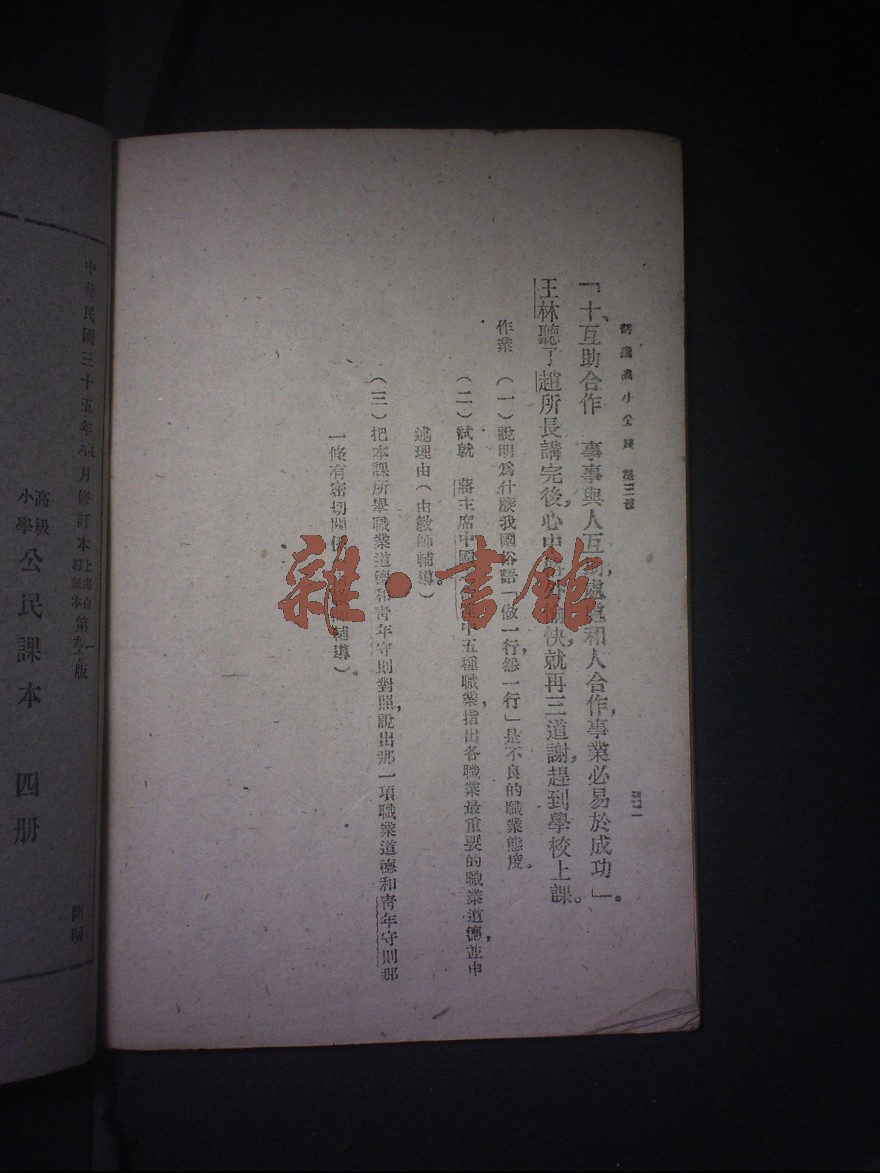 高小公民
「十、互助合作　事事與人互助,處處和人合作,事業必易於成功」。
王林聽了趙所長講完後,心中愉快,就再三道謝,趕到學校上課。
作業　(一)說明爲什麼我國俗語「做一行,怨一行」是不良的職業態度。
(二)試就　蔣主席中國中五種職業,指出各職業最重要的職業道德,並申
述理由(由敎師輔導)
(三)把本課所舉職業道德和靑年守則對照,說出那一項職業道德和靑年守則那
一條有密切關係輔導)。
中華民國三十五年八月修訂本
第
版
高級
小學
公民課本　四册
開明
雜·書館